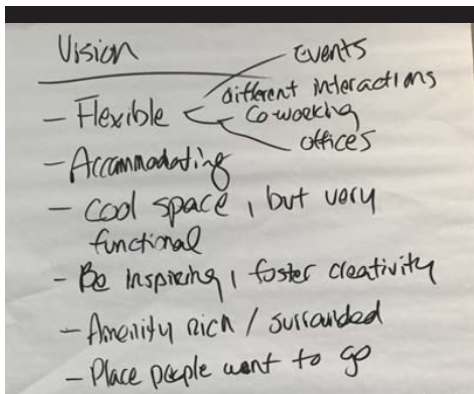 Vision
events
different interactions
- Flexible < Coworking
offices
- Accommodating
- Cool space, but very
functional
- Be inspiring, foster creativity
- Amenity rich / surrounded
- Place people want to go